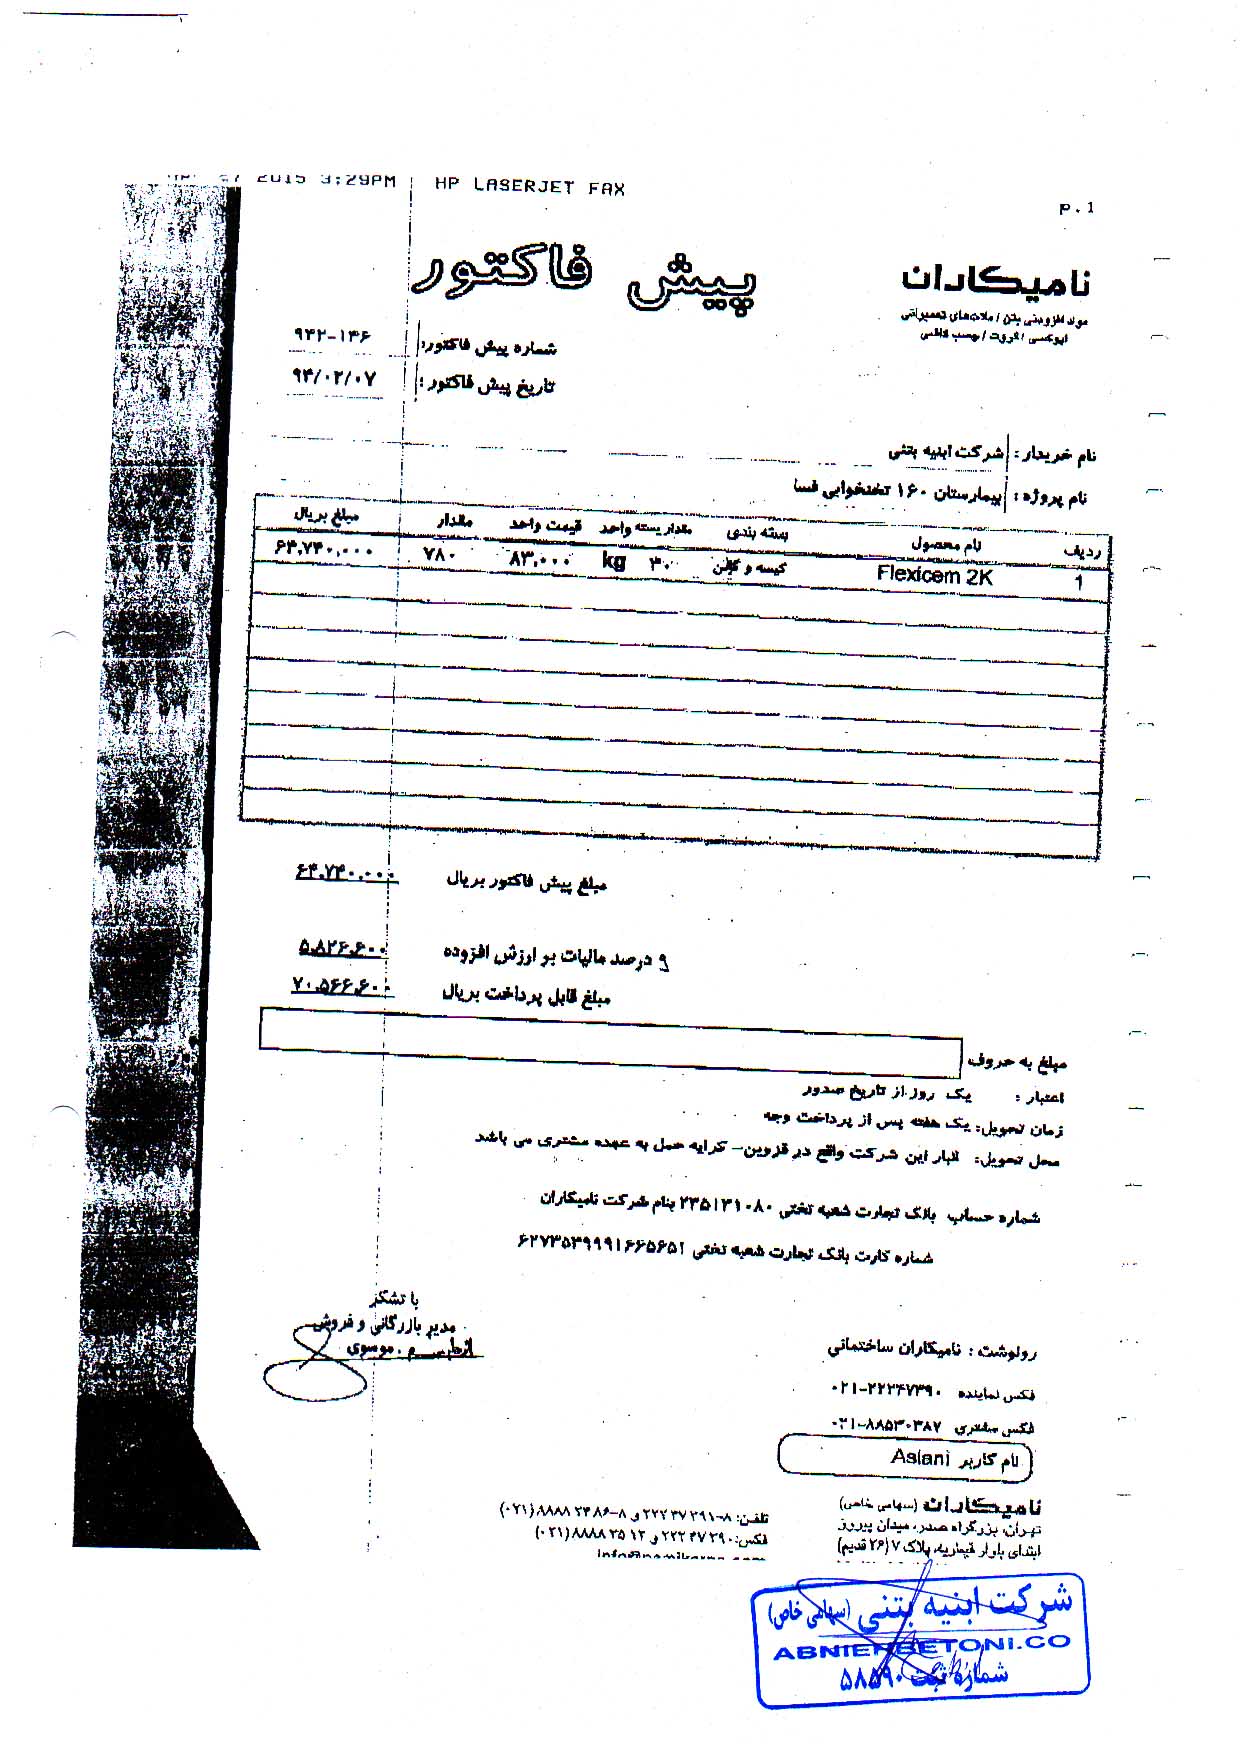 2015 3:29PM HP LASERJET FAX
p.1
نامیکاران
پیش فاکتور
مواد افزودنی بتن / ملات‌های تعمیراتی
اپوکسی / گروت / چسب کاشی
شماره پیش فاکتور: ۹۴۲-۱۳۶
تاریخ پیش فاکتور: ۹۴/۰۲/۰۷
نام خریدار: شرکت ابنیه بتنی
نام پروژه: بیمارستان ۱۶۰ تختخوابی فسا
ردیف نام محصول بسته بندی مقدار بسته واحد قیمت واحد مقدار مبلغ بریال
۱ Flexicem 2K کیسه و گالن ۳۰ kg ۸۳,۰۰۰ ۷۸۰ ۶۴,۷۴۰,۰۰۰
مبلغ پیش فاکتور بریال ۶۴,۷۴۰,۰۰۰
۹ درصد مالیات بر ارزش افزوده ۵,۸۲۶,۶۰۰
مبلغ قابل پرداخت بریال ۷۰,۵۶۶,۶۰۰
مبلغ به حروف
اعتبار: یک روز از تاریخ صدور
زمان تحویل: یک هفته پس از پرداخت وجه
محل تحویل: انبار این شرکت واقع در قزوین- کرایه حمل به عهده مشتری می باشد
شماره حساب بانک تجارت شعبه تختی ۲۳۵۱۳۱۰۸۰ بنام شرکت نامیکاران
شماره کارت بانک تجارت شعبه تختی ۶۲۷۳۵۳۹۹۹۱۶۶۵۶۵۱
با تشکر
مدیر بازرگانی و فروش
م. موسوی
رونوشت: نامیکاران ساختمانی
فکس نماینده ۰۲۱-۲۲۲۴۷۳۹۰
فکس مشتری ۰۲۱-۸۸۵۳۰۳۸۷
نام کاربر Aslani
نامیکاران (سهامی خاص)
تهران، بزرگراه صدر، میدان پیروز
ابتدای بلوار قیطریه، پلاک ۷ (۲۶ قدیم)
تلفن: ۸-۲۲۲۴۷۳۹۱ و ۸-۸۸۸۸۲۴۸۶ (۰۲۱)
فکس: ۲۲۲۴۷۳۹۰ و ۸۸۸۸۳۵۱۲ (۰۲۱)
شرکت ابنیه بتنی (سهامی خاص)
ABNIEHBETONI.CO
شماره ثبت ۵۸۵۹۰